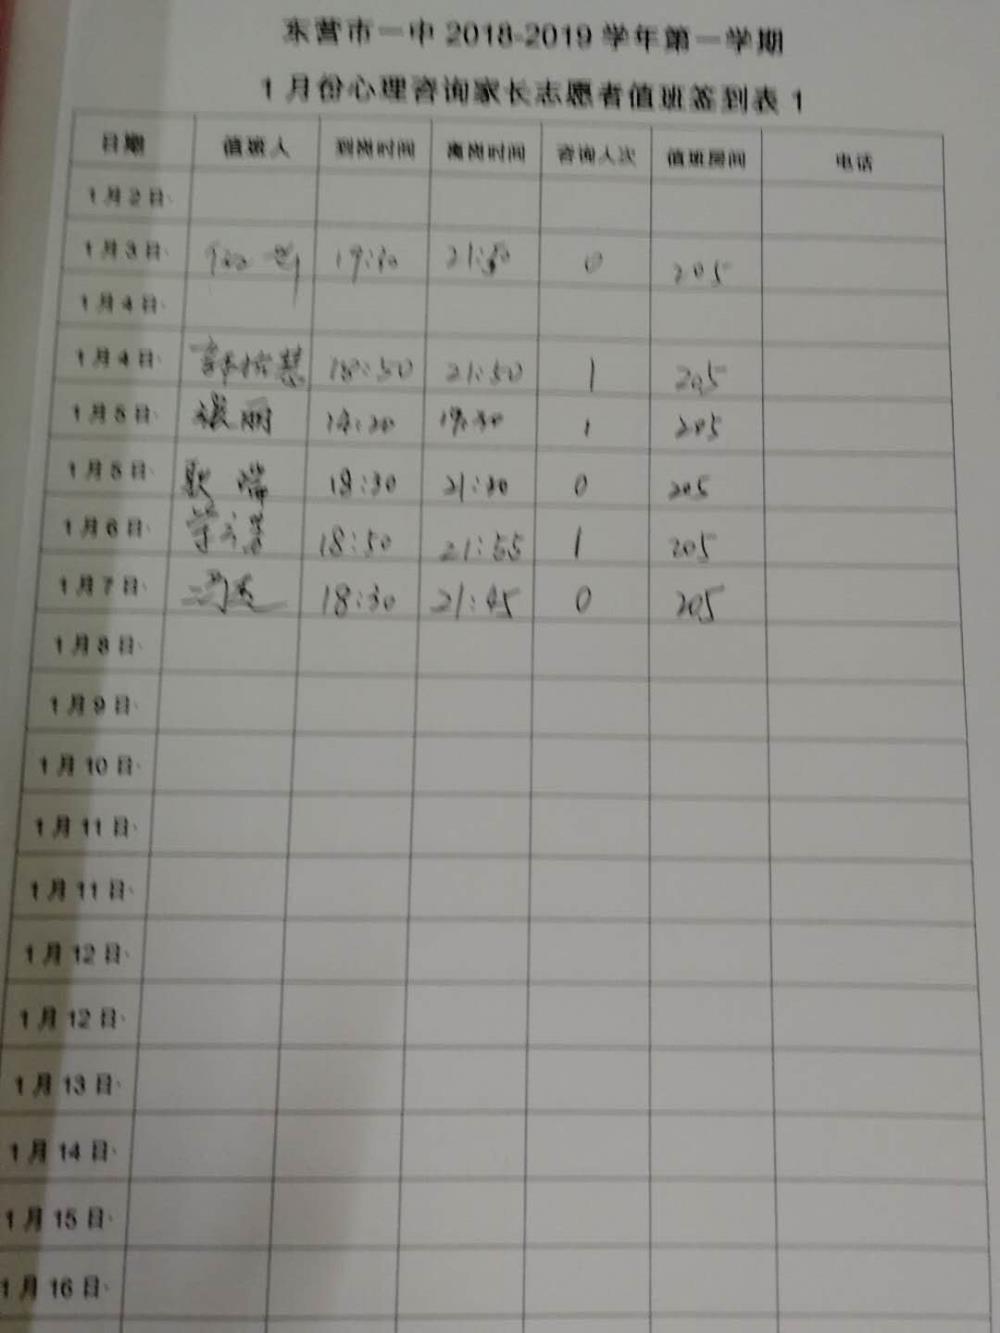 东营市一中 2018-2019 学年第一学期
1 月份心理咨询家长志愿者值班签到表 1
日期 值班人 到岗时间 离岗时间 咨询人次 值班房间 电话
1月2日
1月3日 0 205
1月4日
1月4日 18:50 21:50 1 205
1月5日 张丽 1 205
1月5日 耿瑞 18:30 21:30 0 205
1月6日 18:50 21:55 1 205
1月7日 18:30 21:45 0 205
1月8日
1月9日
1月10日
1月11日
1月11日
1月12日
1月12日
1月13日
1月14日
1月15日
1月16日